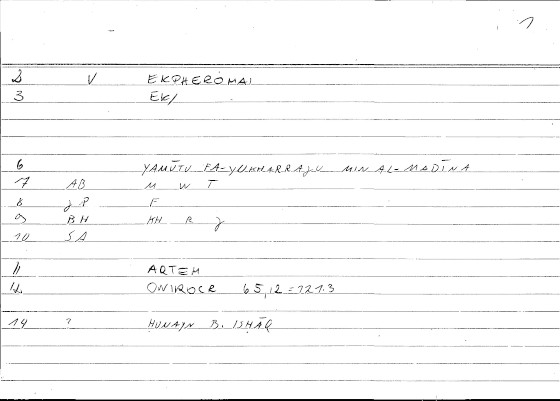 1
2 V EKPHEROMAI
3 EK/
6 YAMŪTU FA-YUKHARRAJU MIN AL-MADĪNA
7 AB M W T
8 JP F
9 BH KH R J
10 SA
11 ARTEM
12 ONIROCR 65,12=121.3
14 ? HUNAYN B. ISHĀQ